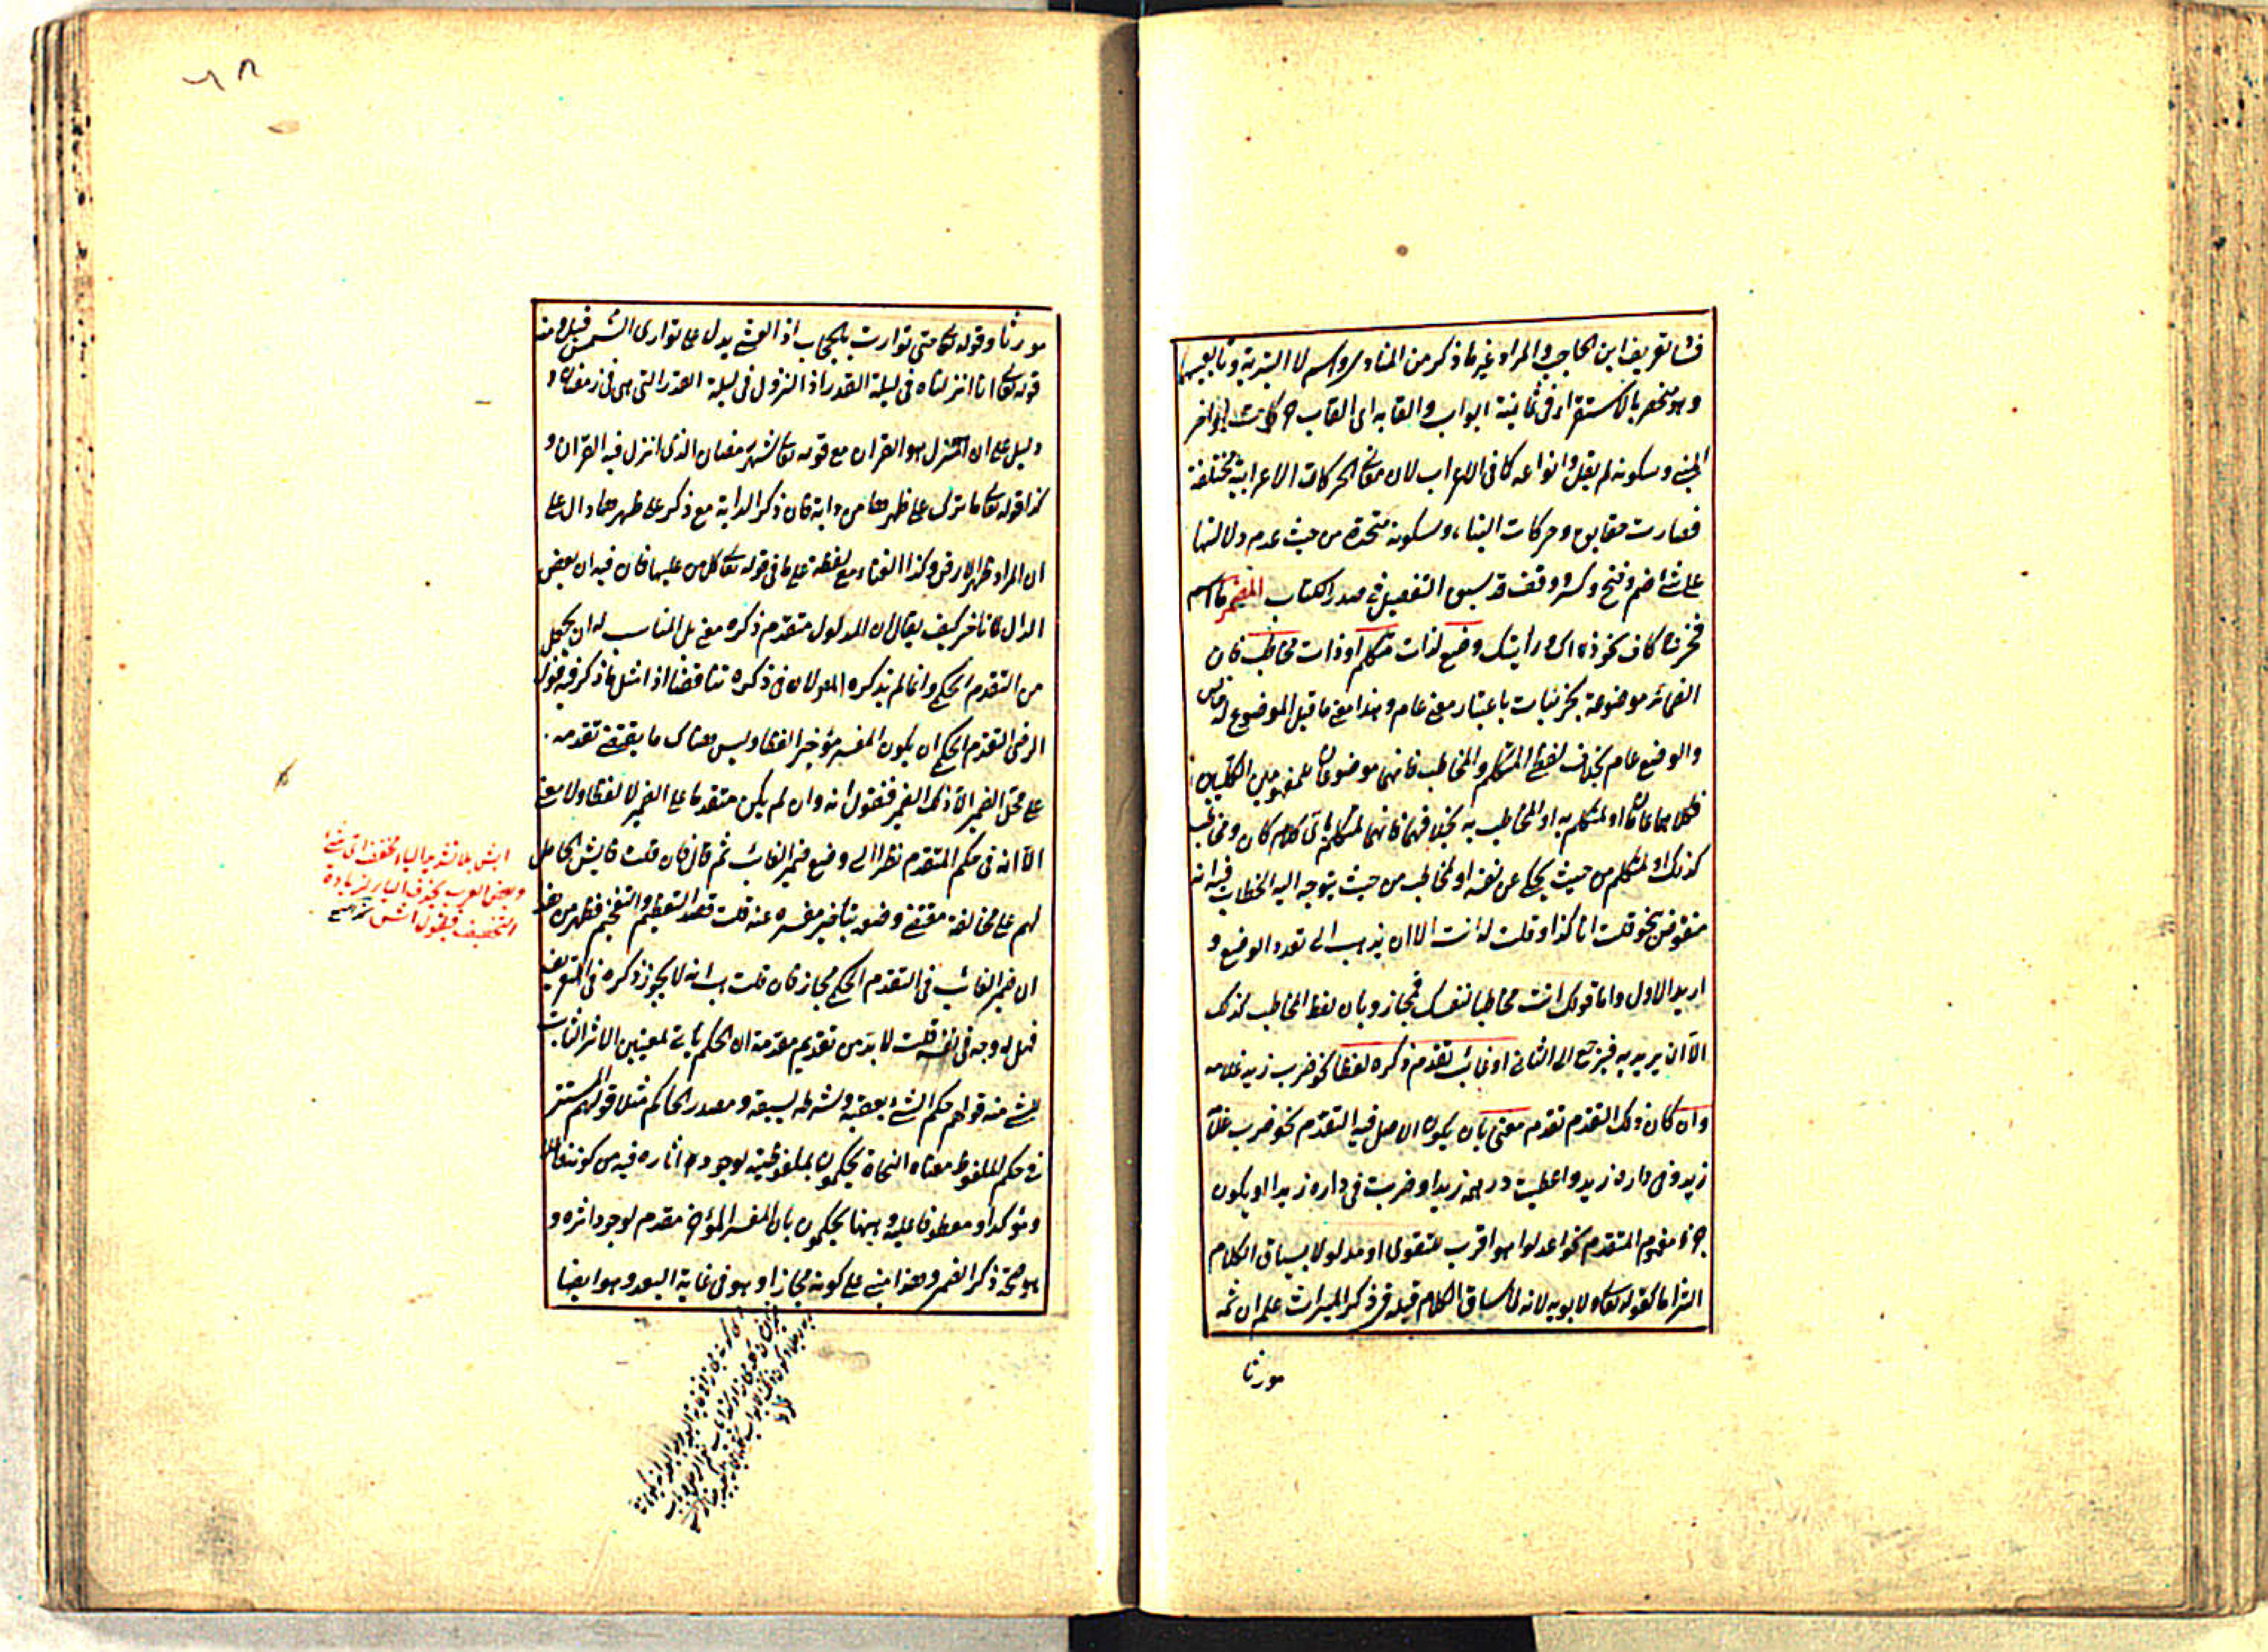 تعريف ابن الحاجب والمراد غير ما ذكر من المنادى واسم لا التبرية وتابعيهما
وهو منحصر بالاستقراء في ثمانية ابواب والقابه اى القاب حركات اواخر
المبنى وسكونه لم يقل وانواعه كما فى الاعراب لان معانى الحركات الاعرابية مختلفة
فصارت حقايق وحركات البناء وسكونه متحدة من حيث عدم دلالتها
على شئ ضم وفتح وكسر ووقف قد سبق التفصيل فى صدر الكتاب المضمر ما اسم
فخرج كاف نحو ذاك ورايتك وضع لذات متكلم او ذات مخاطب فان
الضمائر موضوعة لجزئيات باعتبار معنى عام وهذا معنى ما قيل الموضوع له خاص
والوضع عام بخلاف لفظى المتكلم والمخاطب فانهما موضوعان لمفهومين الكليين
او لمتكلم به او لمخاطب به بخلافهما فانهما لمتكلم باى كلام كان ومخاطب
كذلك او لمتكلم من حيث يحكى عن نفسه او لمخاطب من حيث يتوجه اليه الخطاب فيه انه
منقوض بنحو قلت انا كذا وقلت له انت الا ان يذهب الى تعدد الوضع و
اريد الاول واما قولك انت مخاطبا نفسك فمجاز وبان لفظ المخاطب كذلك
الا ان يريد به فيرجع الى الثانى او غائب تقدم ذكره لفظا نحو ضرب زيد غلامه
وان كان ذلك التقدم تقدمه معنى بان يكون الاصل فيه التقدم نحو ضرب غلامه
زيد وفى داره زيد واعطيت درهمه زيدا وضربت فى داره زيدا او يكون
جزء مفهوم المتقدم نحو اعدلوا هو اقرب للتقوى او مدلولا بسياق الكلام
التزاما كقوله تعالى ولابويه لانه لما ساق الكلام قبله فى ذكر الميراث علم ان ثمه
مورثا
مورثا وقوله تعالى حتى توارت بالحجاب اذ العشى يدل على توارى الشمس قيل ومنه
قوله تعالى انا انزلناه فى ليلة القدر اذ النزول فى ليلة القدر التى هى فى رمضان
دليل على ان المنزل هو القران مع قوله تعالى شهر رمضان الذى انزل فيه القران و
كذا قوله تعالى ما ترك على ظهرها من دابة فان ذكر الدابة مع ذكر على ظهرها دال على
ان المراد ظهر الارض وكذا الفناء مع لفظة على ما فى قوله تعالى كل من عليها فان فيه ان بعض
الدال كيف يقال ان المدلول متقدم ذكره معنى بل المناسب له ان يجعل
من التقدم الحكمى وانما لم يذكره المص لان فى ذكره تناقضا اذ امثل ما ذكر فيه قول
الرضى التقدم الحكمى ان يكون المفسر مؤخرا لفظا وليس هناك ما يقتضى تقدمه
على محل الضمير الا ذلك الضمير فنقول انه وان لم يكن متقدما على الضمير لا لفظا ولا معنى
الا انه فى حكم المتقدم نظرا الى وضع ضمير الغائب ثم قال فان قلت فايش الحامل
لهم على مخالفة مقتضى وضعه بتاخير مفسره عنه قلت قصد التعظيم والتفخيم فظهر من هذا
ان ضمير الغائب فى التقدم الحكمى مجاز فان قلت هب انه لا يجوز ذكره فى التعريف
فهل له وجه فى نفسه قلت لا بد من تقديم مقدمة ان الحكم ياتى لمعنيين الاثر الثابت
للشئ منه قولهم حكم الشئ يعقبه وشرطه يسبقه ومصدر الحاكم مثلا قولهم المستتر
فى حكم الملفوظ معناه النحاة يحكمون بملفوظيته لوجود اثاره فيه من كونه فاعلا
ومؤكدا ومعطوفا عليه وههنا يحكمون بان المفسر المؤخر مقدم لوجود اثره و
هو صحة ذكر الضمير وهذا مبنى على كونه مجازا وهو فى غاية البعد وهو ايضا
ايش بلا تشديد الياء مخفف اى شئ
وبعض العرب بحذف الياء لزيادة
التخفيف فيقول اش